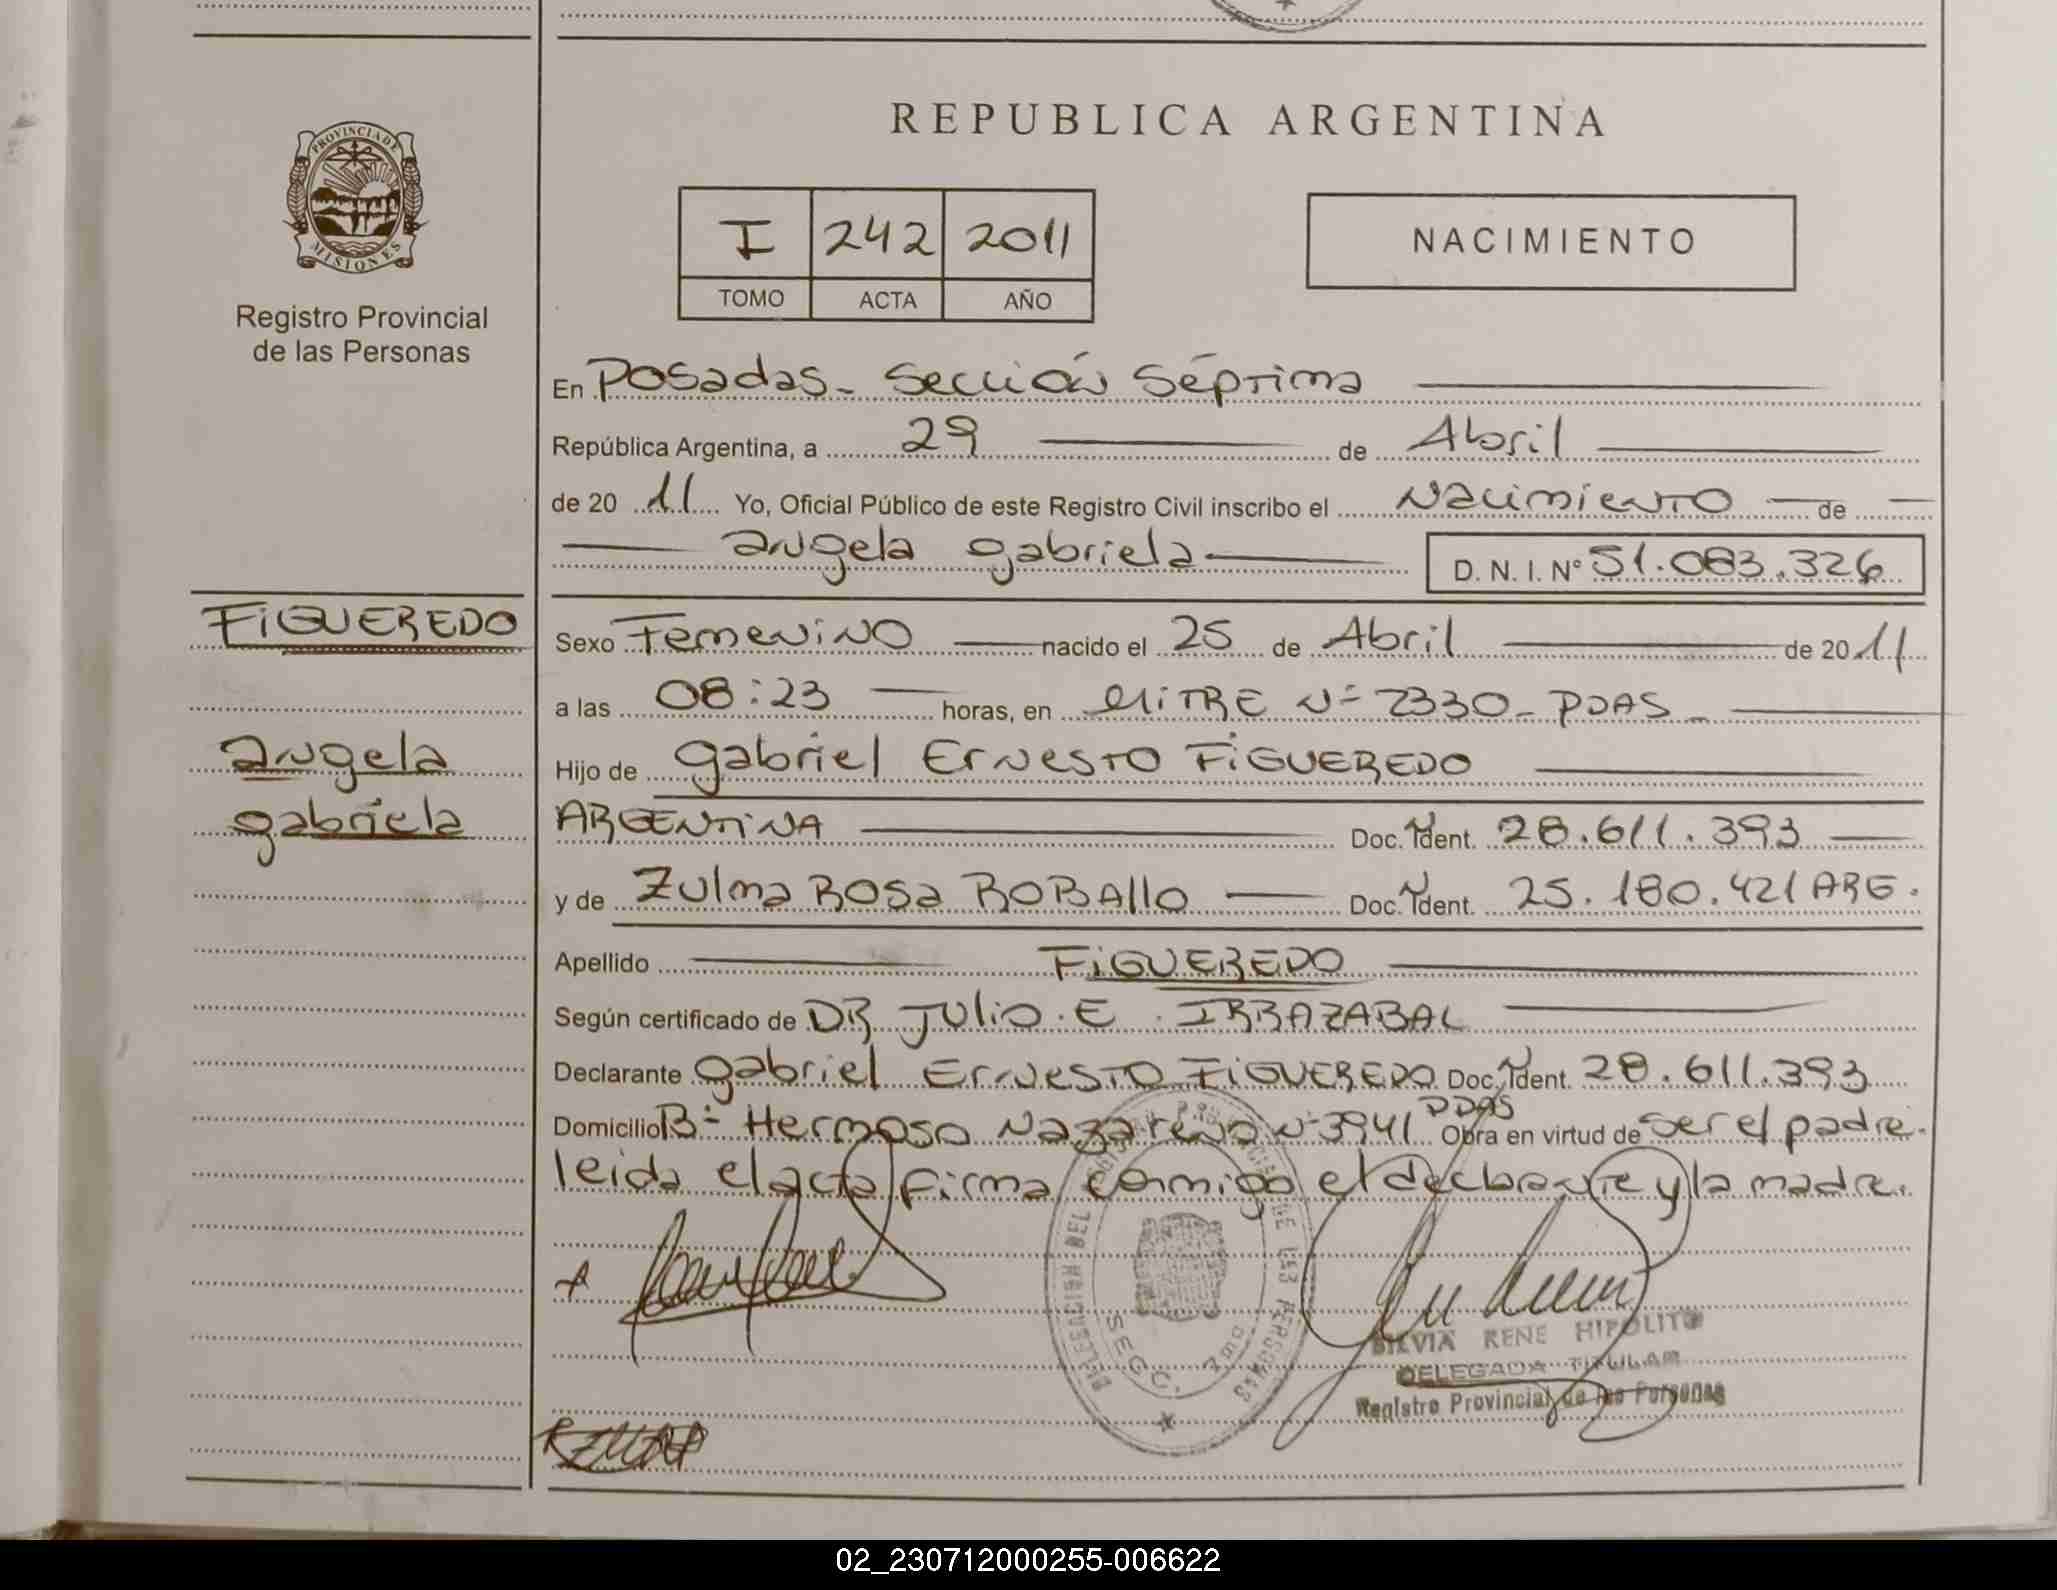 REPUBLICA ARGENTINA
PROVINCIA DE
MISIONES
Registro Provincial
de las Personas
I 242 2011
TOMO ACTA AÑO
NACIMIENTO
En Posadas - Sección Séptima
República Argentina, a 29 de Abril
de 20 11 Yo, Oficial Público de este Registro Civil inscribo el Nacimiento de
angela gabriela D. N. I. N° 51.083.326
FIGUEREDO
Sexo Femenino nacido el 25 de Abril de 20 11
a las 08:23 horas, en MITRE Nº 2330 - PDAS -
angela
Hijo de gabriel Ernesto FIGUEREDO
gabriela
ARGENTINA Doc. Ident. 28.611.393
y de Zulma Rosa ROBAllo Doc. Ident. 25.180.421 ARG.
Apellido FIGUEREDO
Según certificado de DR JULIO. E. IRRAZABAL
Declarante gabriel Ernesto FIGUEREDO Doc. Ident. 28.611.393
Domicilio Bº Hermoso Nazareno Nº 3941 PDAS Obra en virtud de ser el padre.
leida el acta firma conmigo el declarante y la madre.
DELEGACION DEL REGISTRO PROVINCIAL DE LAS PERSONAS
SECC. 7ma
SILVIA RENE HIPOLITO
DELEGADA TITULAR
Registro Provincial de las Personas
02_230712000255-006622